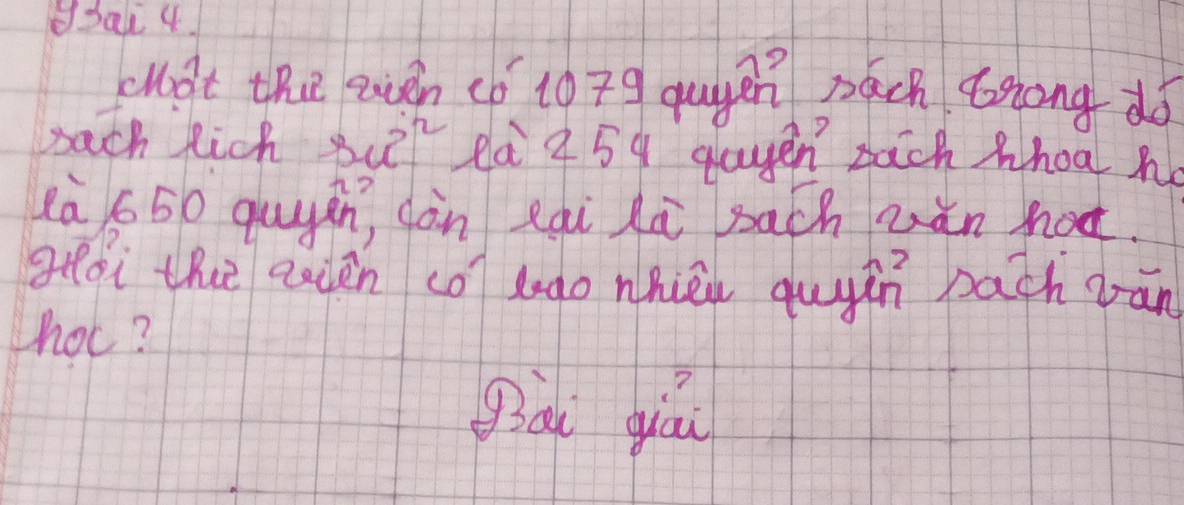 Bài 4.
Một thư viện có 1079 quyển sách. trong đó
sách lịch sử là 254 quyển sách khoa họ
là 650 quyển, còn lại là sách văn học.
Hỏi thư viện có bao nhiêu quyển sách văn
học?
Bài giải